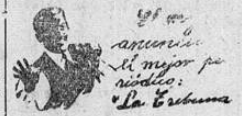 anuncia
el mejor pe
riódico:
"La Tribuna